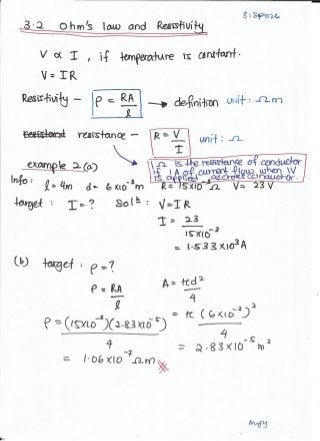 S:SP026
3.2 Ohm's law and Resistivity
V ∝ I , if temperature is constant.
V = IR
Resistivity - ρ = RA/l → definition unit: Ωm
resistance - R = V/I unit: Ω
Ω is the resistance of conductor
if 1A of current flow when 1V
is applied accross conductor.
example 2(a)
Info: l = 4m d = 6×10⁻³m R = 15×10⁻³Ω V = 23V
target : I = ? Solⁿ: V = IR
I = 23/15×10⁻³
= 1.533×10³A
(b) target : ρ = ?
ρ = RA/l A = πd²/4
ρ = (15×10⁻³)(2.83×10⁻⁵)/4 = π(6×10⁻³)²/4
= 1.06×10⁻⁷Ωm = 2.83×10⁻⁵m²